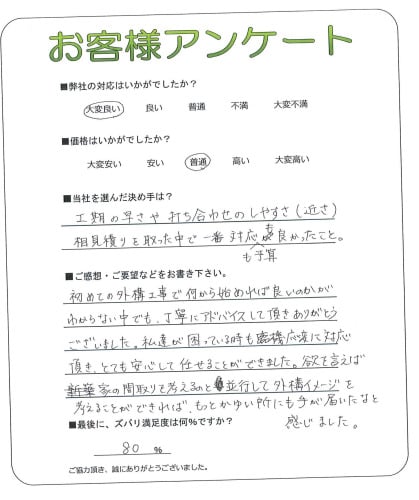 お客様アンケート
■弊社の対応はいかがでしたか？
大変良い 良い 普通 不満 大変不満
■価格はいかがでしたか？
大変安い 安い 普通 高い 大変高い
■当社を選んだ決め手は？
工期の早さや打ち合わせのしやすさ(近さ)
相見積りを取った中で一番対応も予算も良かったこと。
■ご感想・ご要望などをお書き下さい。
初めての外構工事で何から始めれば良いのかが
わからない中でも、丁寧にアドバイスして頂きありがとう
ございました。私達が困っている時も臨機応変に対応
頂き、とても安心して任せることができました。欲を言えば
新築家の間取りを考えるのと並行して外構イメージを
考えることができれば、もっとかゆい所にも手が届いたなと
感じました。
■最後に、ズバリ満足度は何％ですか？
80 ％
ご協力頂き、誠にありがとうございました。